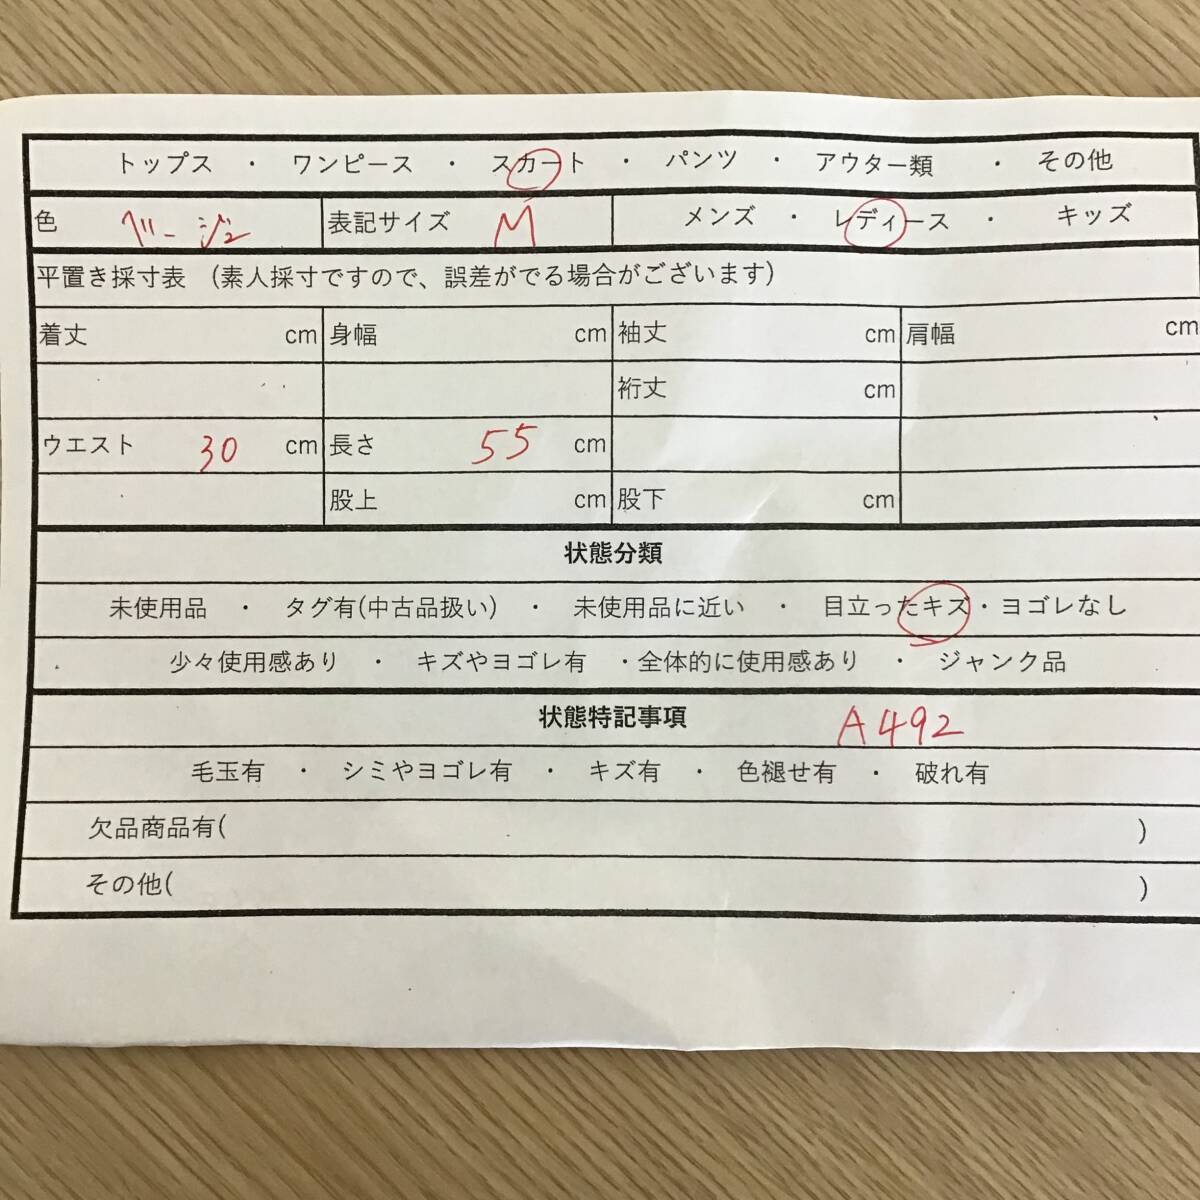 トップス ・ ワンピース ・ スカート ・ パンツ ・ アウター類 ・ その他
色 ベージュ 表記サイズ M メンズ ・ レディース ・ キッズ
平置き採寸表 (素人採寸ですので、誤差がでる場合がございます)
着丈 cm 身幅 cm 袖丈 cm 肩幅 cm
裄丈 cm
ウエスト 30 cm 長さ 55 cm
股上 cm 股下 cm
状態分類
未使用品 ・ タグ有(中古品扱い) ・ 未使用品に近い ・ 目立ったキズ・ヨゴレなし
少々使用感あり ・ キズやヨゴレ有 ・全体的に使用感あり ・ ジャンク品
状態特記事項 A492
毛玉有 ・ シミやヨゴレ有 ・ キズ有 ・ 色褪せ有 ・ 破れ有
欠品商品有( )
その他( )